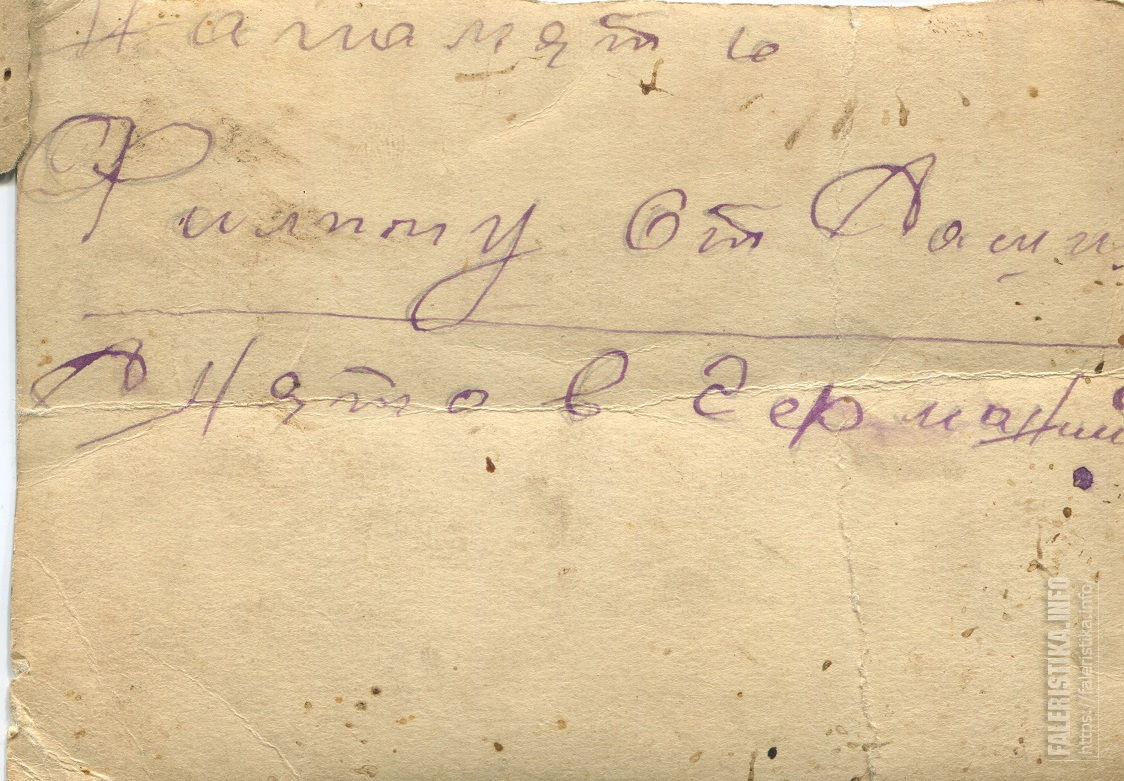 На память
Филиппу От Саши
Снято в Германии
FALERISTIKA.INFO
https://faleristika.info/